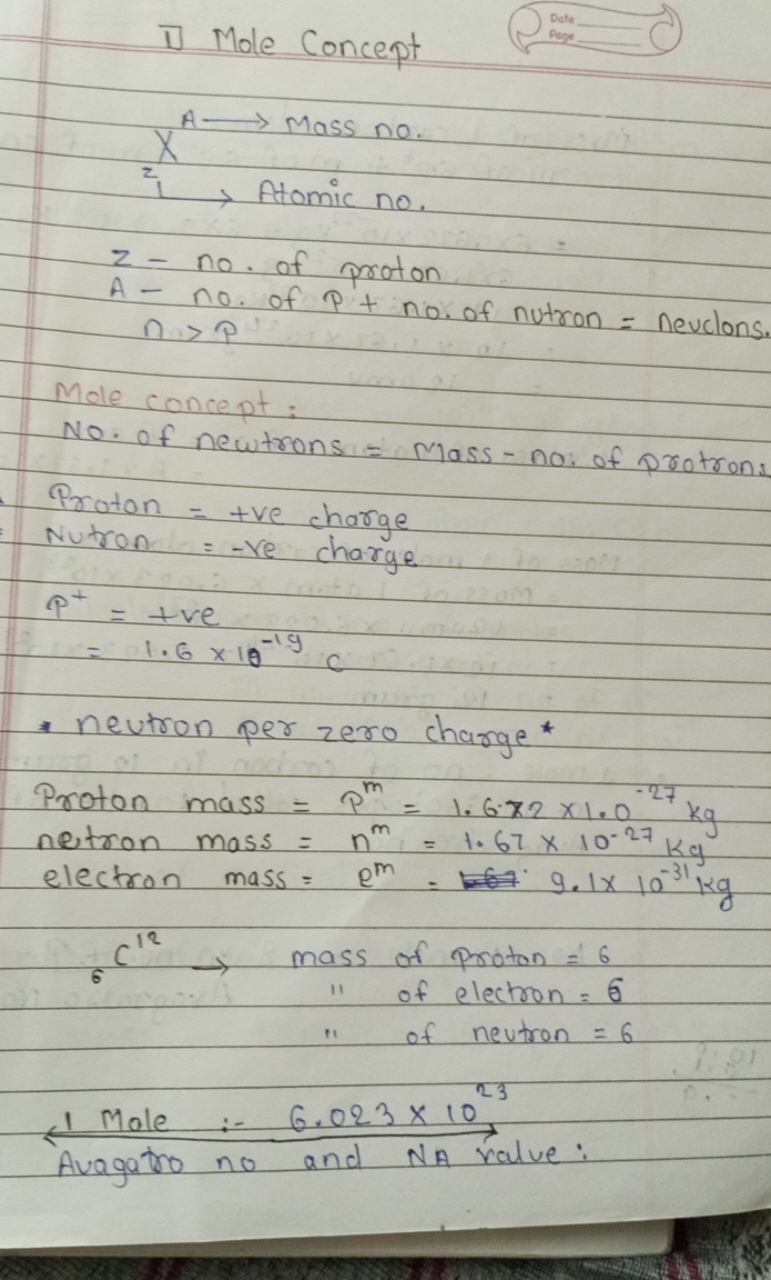 Date
Page
1] Mole Concept
A → Mass no.
X
Z
→ Atomic no.
Z - no. of proton
A - no. of P + no. of nutron = neuclons.
n > P
Mole concept :
No. of newtrons = Mass - no. of protrons
Proton = +ve charge
Nutron = -ve charge
P+ = +ve
= 1.6 × 10⁻¹⁹ C
* neutron per zero charge *
Proton mass = Pᵐ = 1.672 × 1.0⁻²⁷ kg
neutron mass = nᵐ = 1.67 × 10⁻²⁷ Kg
electron mass = eᵐ = 9.1 × 10⁻³¹ kg
₆C¹² → mass of proton = 6
" of electron = 6
" of neutron = 6
1 Mole :- 6.023 × 10²³
Avagatro no and NA value :